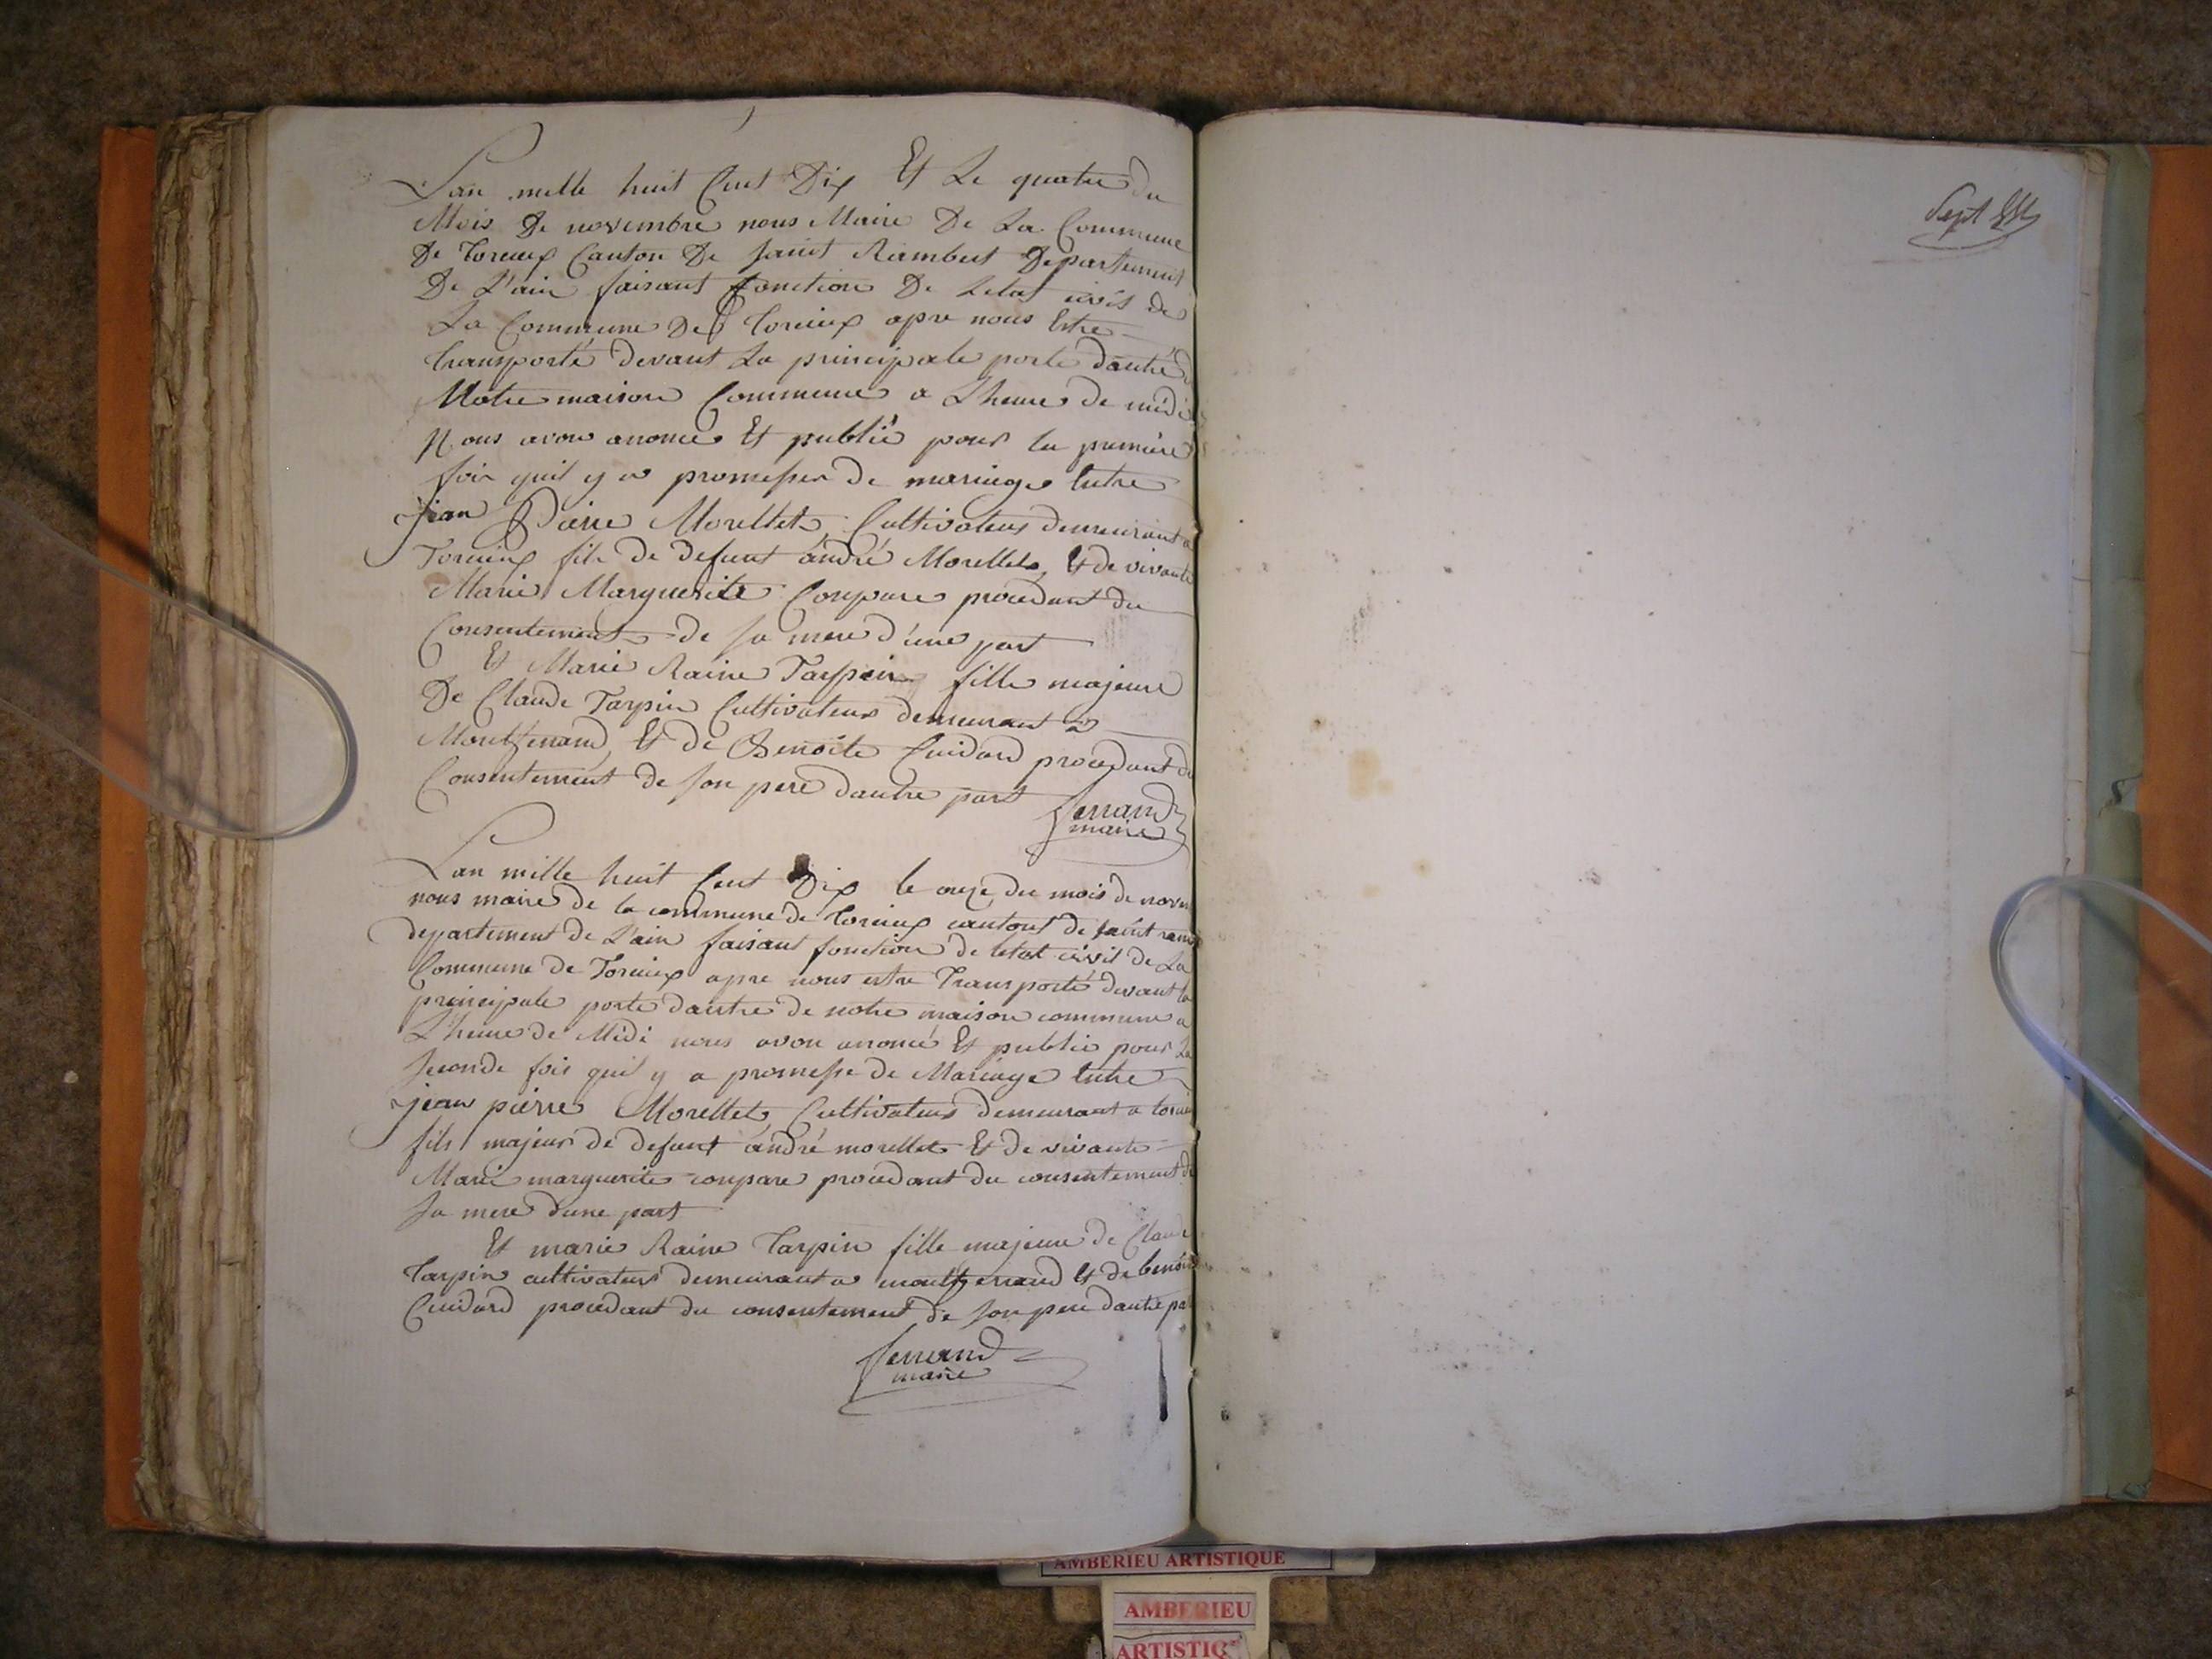 Lan mille huit Cent Dix Et Le quatre du
Mois De novembre nous Maire De La Commune
De Torcieux Canton De saint Rambert Departement
De L'ain faisant fonction De Letat civil de
La Commune De Torcieux apre nous Estre
transporté devant La principale porte dantré
Notre maison Commune a Lheure de midi
Nous avon anoncé Et publié pour la premiere
fois quil y a promesses de mariage Entre
jean Pierre Morellet Cultivateur demeurant a
Torcieux fils de defunt andré Morellet, Et de vivante
Marie Marguerite Conpare procedant du
Consentement de sa mere d'une part
Et Marie Raine Tarpin fille majeure
De Claude Tarpin Cultivateur demeurant a
Montferrand, Et de Benoite Cuidard procedant du
Consentement de son pere dautre part
ferrand
maire
Lan mille huit Cent Dix le onze du mois de novem
nous maire de la commune de Torcieux canton de saint ram
departement de L'ain faisant fonction de letat civil de La
Commune de Torcieux apre nous estre Transporté devant la
principale porte dantre de notre maison commune a
L'heure de Midi nous avon anoncé Et publié pour La
seconde fois quil y a promesse de Mariage Entre
jean pierre Morellet, Cultivateur demeurant a torcieu
fils majeur de defunt andré morellet Et de vivante
Marie marguerite conpare procedant du consentement de
sa mere dune part
Et marie Raine Tarpin fille majeure de Claude
Tarpin cultivateur demeurant a montferrand Et de benoite
Cuidard procedant du consentement de son pere dautre pa
ferrand
maire
Sept
AMBERIEU ARTISTIQUE
AMBERIEU
ARTISTIQ